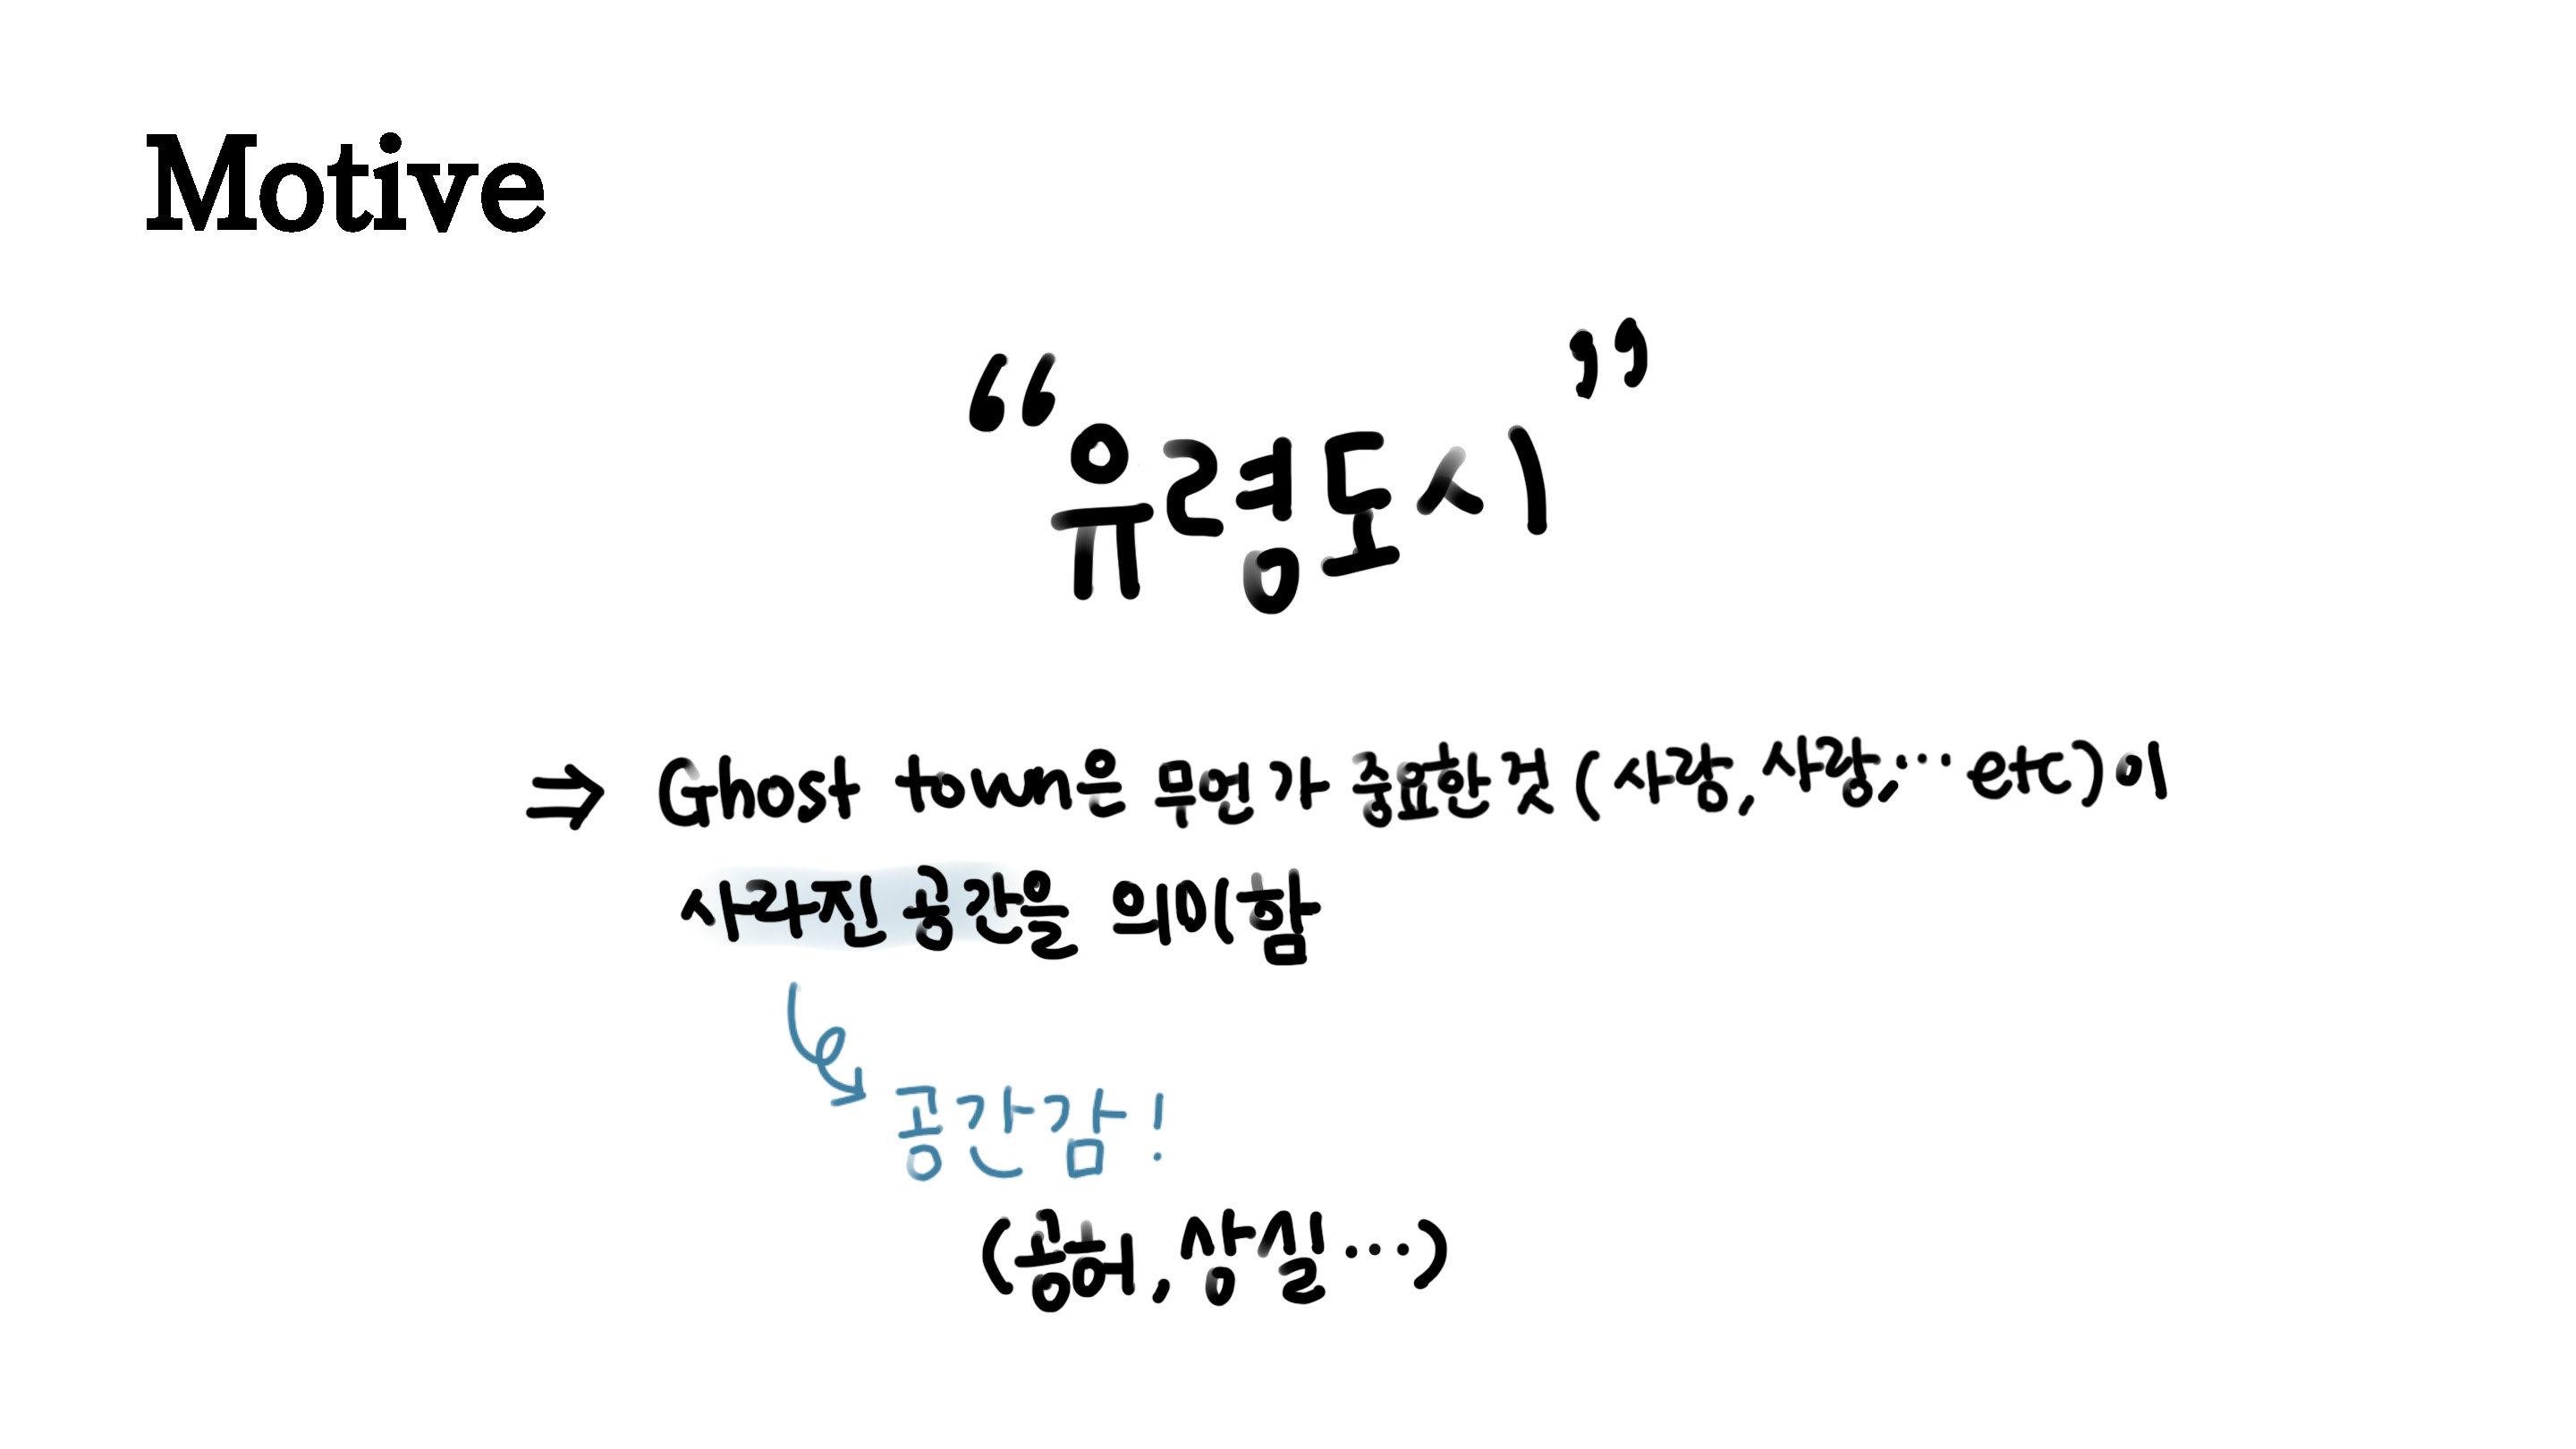 Motive
“유령도시”
⇒ Ghost town은 무언가 중요한것 (사랑, 사랑, ... etc)이
사라진 공간을 의미함
공간감!
(공허, 상실...)